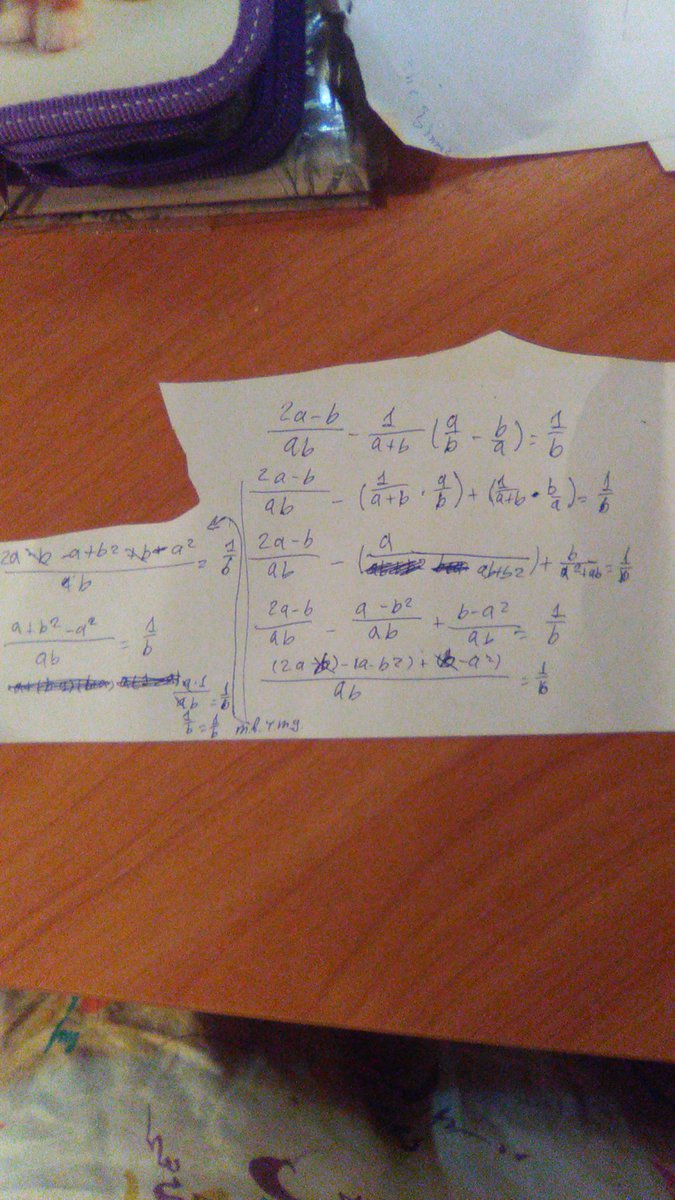 \frac{2a-b}{ab} - \frac{1}{a+b} (\frac{a}{b} - \frac{b}{a}) = \frac{1}{b}
\frac{2a-b}{ab} - (\frac{1}{a+b} \cdot \frac{a}{b}) + (\frac{1}{a+b} \cdot \frac{b}{a}) = \frac{1}{b}
\frac{2a-b}{ab} - (\frac{a}{ab+b^2}) + \frac{b}{a^2+ab} = \frac{1}{b}
\frac{2a-b}{ab} - \frac{a-b^2}{ab} + \frac{b-a^2}{ab} = \frac{1}{b}
\frac{(2a-b)-(a-b^2)+(b-a^2)}{ab} = \frac{1}{b}
\frac{2a-b-a+b^2+b-a^2}{ab} = \frac{1}{b}
\frac{a+b^2-a^2}{ab} = \frac{1}{b}
\frac{a \cdot 1}{ab} = \frac{1}{b}
\frac{1}{b} = \frac{1}{b}